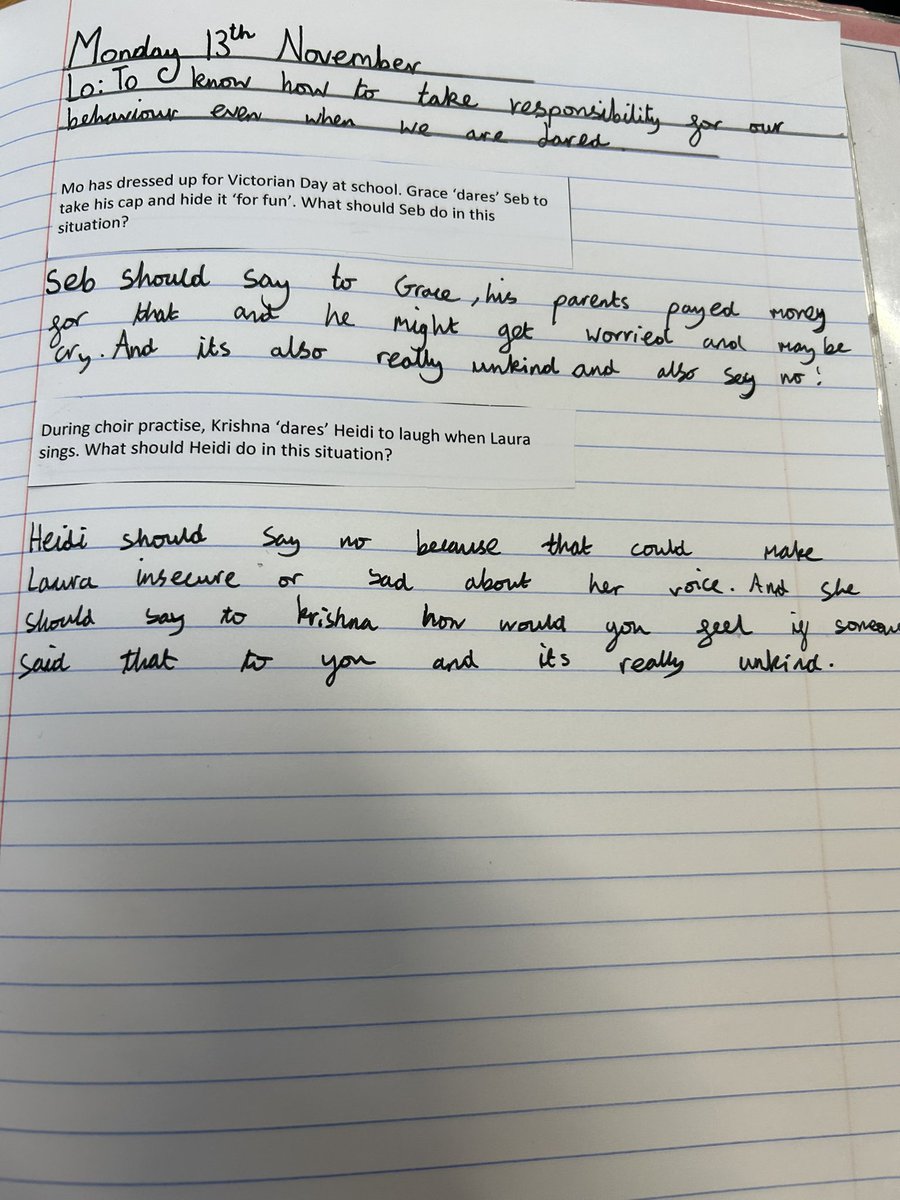 Monday 13th November
Lo: To know how to take responsibility for our
behaviour even when we are dared.
Mo has dressed up for Victorian Day at school. Grace ‘dares’ Seb to
take his cap and hide it ‘for fun’. What should Seb do in this
situation?
Seb should say to Grace, his parents payed money
for that and he might get worried and maybe
cry. And its also really unkind and also say no!
During choir practise, Krishna ‘dares’ Heidi to laugh when Laura
sings. What should Heidi do in this situation?
Heidi should say no because that could make
Laura insecure or sad about her voice. And she
should say to krishna how would you feel if someon
said that to you and its really unkind.